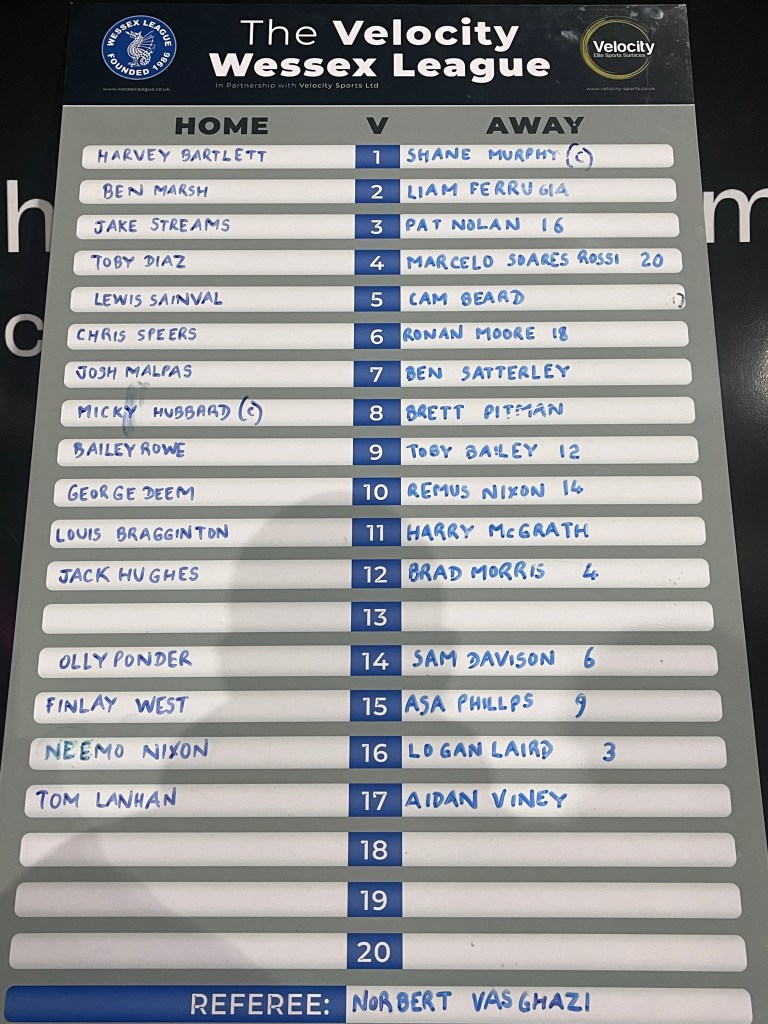 WESSEX LEAGUE
FOUNDED 1986
www.wessexleague.co.uk
The Velocity
Wessex League
In Partnership with Velocity Sports Ltd
Velocity
Elite Sports Surfaces
www.velocity-sports.co.uk
HOME V AWAY
HARVEY BARTLETT 1 SHANE MURPHY (C)
BEN MARSH 2 LIAM FERRUGIA
JAKE STREAMS 3 PAT NOLAN 16
TOBY DIAZ 4 MARCELO SOARES ROSSI 20
LEWIS SAINVAL 5 CAM BEARD
CHRIS SPEERS 6 RONAN MOORE 18
JOSH MALPAS 7 BEN SATTERLEY
MICKY HUBBARD (C) 8 BRETT PITMAN
BAILEY ROWE 9 TOBY BAILEY 12
GEORGE DEEM 10 REMUS NIXON 14
LOUIS BRAGGINTON 11 HARRY McGRATH
JACK HUGHES 12 BRAD MORRIS 4
13
OLLY PONDER 14 SAM DAVISON 6
FINLAY WEST 15 ASA PHILLPS 9
NEEMO NIXON 16 LOGAN LAIRD 3
TOM LANHAN 17 AIDAN VINEY
18
19
20
REFEREE: NORBERT VASGHAZI